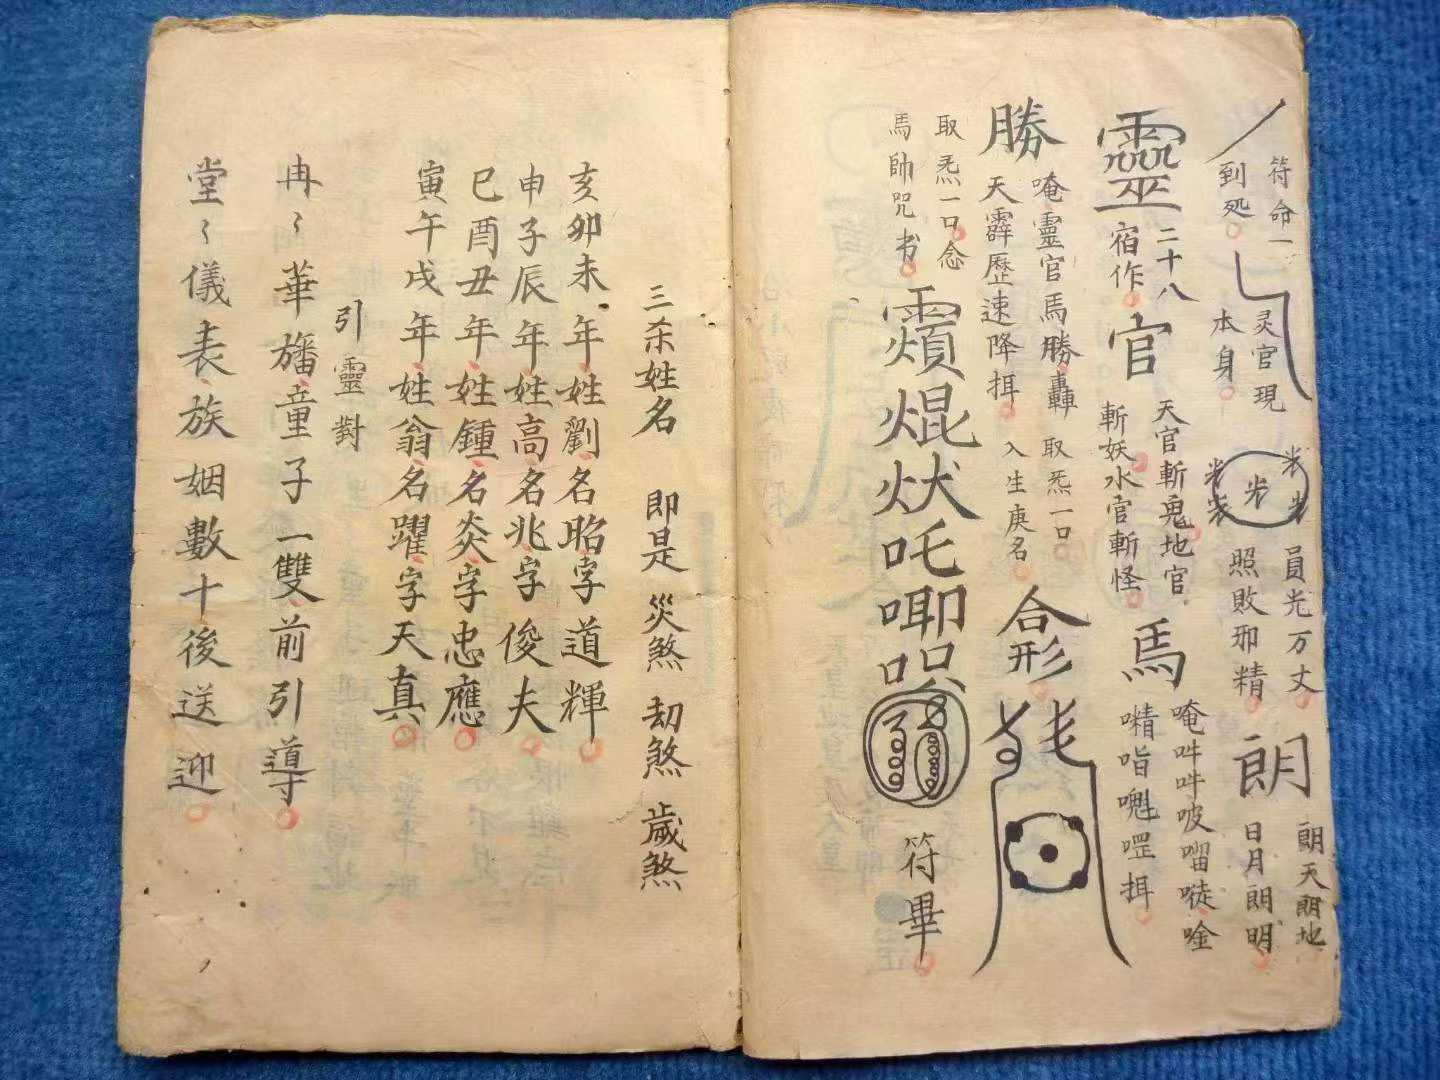 符命一
到処
灵官現
本身
員光万丈
照敗邪精
朗
朗天朗地
日月朗明
靈
二十八
宿作
官
天官斬鬼地官
斬妖水官斬怪
馬
唵吽吽吱
勝
唵靈官馬勝轟
天霹歷速降揖
取炁一口
入生庚名
合形
取炁一口念
馬帥咒书
焜
吒唧
符畢
三杀姓名 即是 災煞 劫煞 歲煞
亥卯未年姓劉名昭字道輝
申子辰年姓高名兆字俊夫
巳酉丑年姓鍾名炎字忠應
寅午戌年姓翁名躍字天真
引靈對
冉〻華旛童子一雙前引導
堂〻儀表族姻數十後送迎